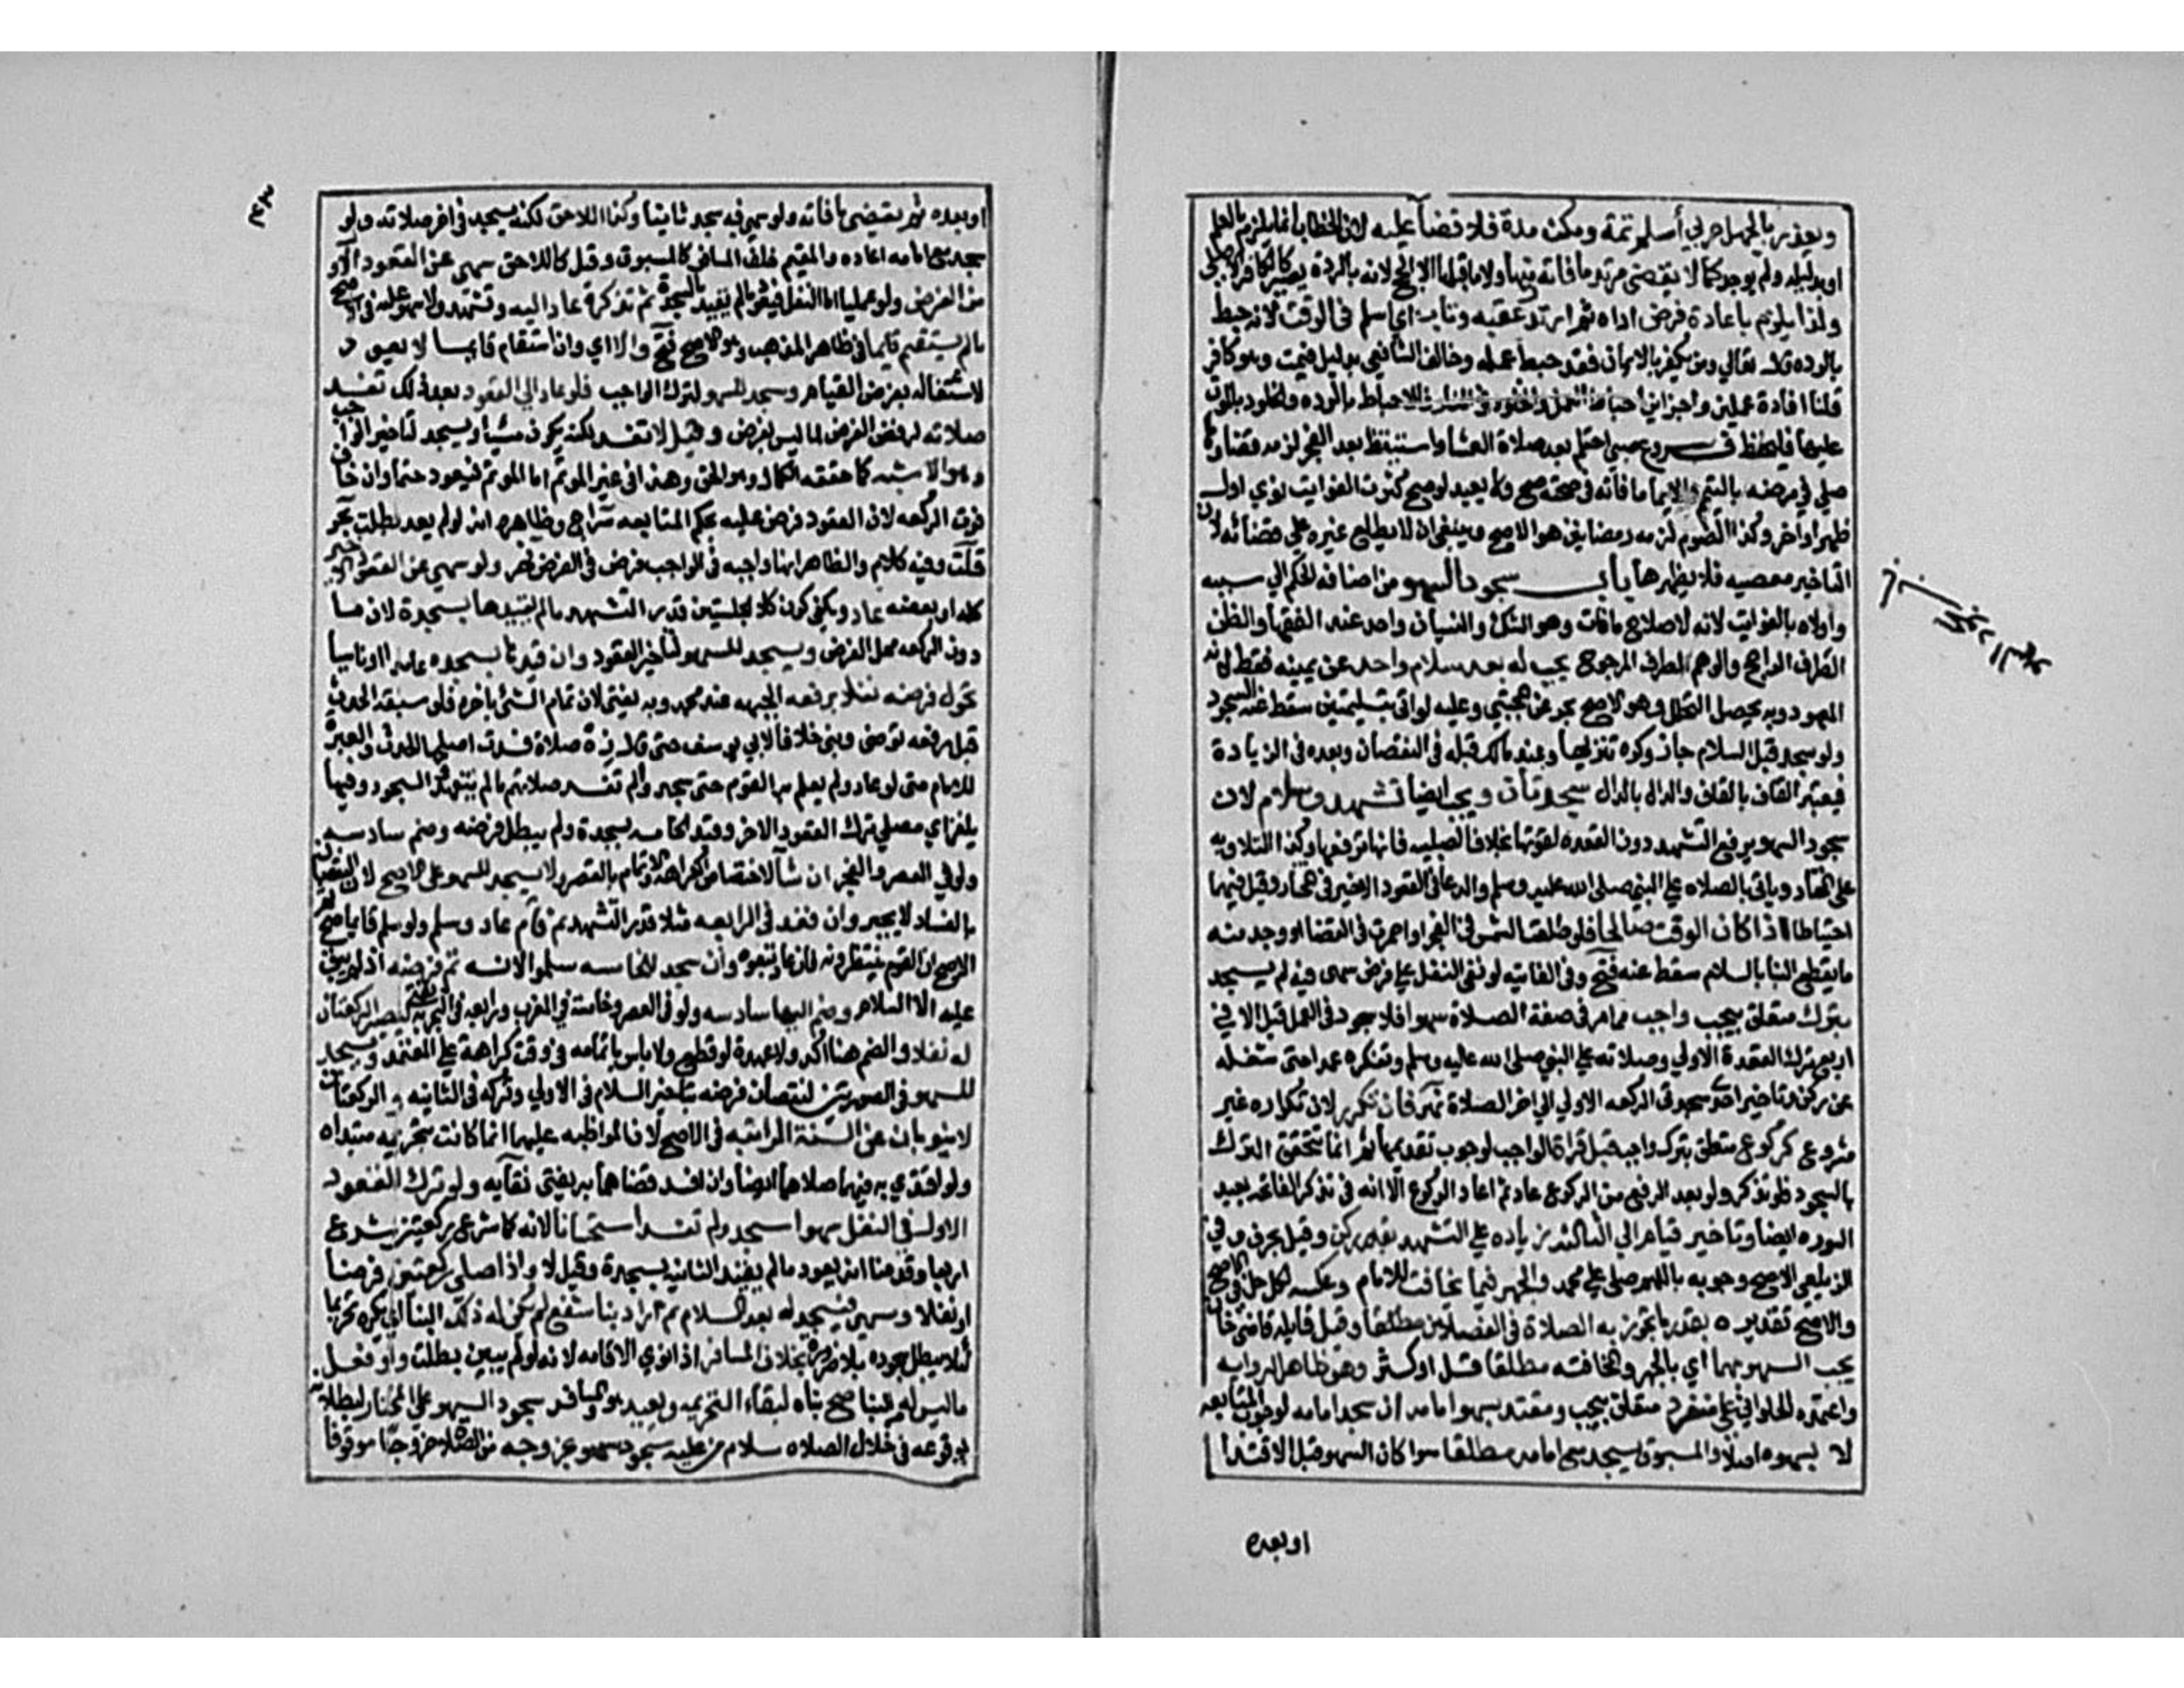 ويعذر بالجهل حربي أسلم ثمة ومكث مدة فلا قضا عليه لان الخطاب انما يلزم بالعلم
او بدليله ولم يوجد كما لا يقضي مرتد ما فاته فيها ولا ما قبلها الا الحج لانه بالردة يصير كالكافر الاصلي
ولذا يلزم باعادة فرض اداه ثم ارتد عقبه وتاب اي اسلم في الوقت لانه حبط
بالرده قال تعالي ومن يكفر بالايمان فقد حبط عمله وخالف الشافعي بدليل فيمت وهو كافر
قلنا افادة عملين وجزاين احباط العمل والخلود في النار فالاحباط بالرده والخلود بالموت
عليها فليحفظ فروع صبي احتلم بعد صلاة العشا واستيقظ بعد الفجر لزمه قضاوها
صلي في مرضه بالتيمم والايما ما فاته في صحته صح ولا يعيد لو صح كثرت الفوايت نوي اول
ظهر او اخره وكذا الصوم لزمه رمضانين هو الاصح وينبغي ان لا يطلع غيره علي قضائه لان
التاخير معصيه فلا يظهرها باب سجود السهو من اضافه الحكم الي سببه
واولاه بالفوايت لانه لاصلاح ما فات وهو والشك والنسيان واحد عند الفقها والظن
الطرف الراجح والوهم الطرف المرجوح يجب له بعد سلام واحد عن يمينه فقط لانه
المعهود وبه يحصل التحليل وهو الاصح بحر عن المجتبي وعليه لو اتي بتسليمتين سقط عنه السجود
ولو سجد قبل السلام جاز وكره تنزيها وعند مالك قبله في النقصان وبعده في الزيادة
فيعتبر القاف بالقاف والدال بالدال سجدتان ويجب ايضا تشهد وسلام لان
سجود السهو يرفع التشهد دون القعده لقوتها بخلاف الصلبيه فانها ترفعها وكذا التلاويه
علي المختار وياتي بالصلاه علي النبي صلي الله عليه وسلم والدعا في القعود الاخير في المختار وقيل فيهما
احتياطا اذا كان الوقت صالحا فلو طلعت الشمس في الفجر او احمرت في القضا او وجد منه
ما يقطع البنا بالسلام سقط عنه فتح وفي القنيه لو بني النفل علي فرض سهى فيه لم يسجد
بترك متعلق بيجب واجب مما مر في صفة الصلاة سهوا فلا سجود في العمد قيل الا في
اربع ترك القعدة الاولي وصلاته علي النبي صلي الله عليه وسلم وتفكره عمدا حتى شغله
عن ركن وتاخير احدى سجدتي الركعه الاولي الي اخر الصلاة نهر فان تكرر لان تكراره غير
مشروع كركوع متعلق بترك واجب قبل قراة الواجب لوجوب تقديمها ثم انما يتحقق الترك
بالسجود فلو تذكر ولو بعد الرفع من الركوع عاد ثم اعاد الركوع الا انه في تذكر الفاتحه يعيد
السوره ايضا وتاخير قيام الي الثالثه بزياده علي التشهد بقدر ركن وقيل بحرف وفي
الزيلعي الاصح وجوبه باللهم صلي علي محمد والجهر فيما يخافت للامام وعكسه لكل مصل في الاصح
والاصح تقديره بقدر ما تجوز به الصلاة في الفصلين مطلقا وقيل قايله قاضي خان
يجب السهو بهما اي بالجهر والمخافته مطلقا قل او كثر وهو ظاهر الروايه
واعتمده الحلواني علي منفرد متعلق بيجب ومقتد بسهو امامه ان سجد امامه لوجوب المتابعه
لا بسهوه اصلا والمسبوق يسجد مع امامه مطلقا سوا كان السهو قبل الاقتدا
او بعده
او بعده ثم يقضي ما فاته ولو سهى فيه سجد ثانيا وكذا اللاحق لكنه يسجد في اخر صلاته ولو
سجد مع امامه اعاده والمقيم خلف المسافر كالمسبوق وقيل كاللاحق سهى عن القعود الاول
من الفرض ولو عمليا اما النفل فيعود ما لم يقيد بالسجدة ثم تذكره عاد اليه وتشهد ولا سهو عليه في الاصح
ما لم يستقم قايما في ظاهر المذهب وهو الاصح فتح والا اي وان استقام قايما لا يعود
لاشتغاله بفرض القيام وسجد للسهو لترك الواجب فلو عاد الي القعود بعد ذلك تفسد
صلاته لرفض الفرض لما ليس بفرض وقيل لا تفسد لكنه يكون مسيئا ويسجد لتاخير الواجب
وهو الاشبه كما حققه الكمال وهو الحق وهذا في غير الموتم اما الموتم فيعود حتما وان خاف
فوت الركعه لان القعود فرض عليه بحكم المتابعه سراج وظاهره انه لو لم يعد بطلت بحر
قلت وفيه كلام والظاهر انها واجبه في الواجب فرض في الفرض نهر ولو سهى عن القعود الاخير
كله او بعضه عاد ويكفي كون كلا الجلستين قدر التشهد ما لم يقيدها بسجدة لان ما
دون الركعه محل الفرض ويسجد للسهو لتاخير القعود وان قيدها بسجده عامدا او ناسيا
تحول فرضه نفلا برفعه الجبهه عند محمد وبه يفتى لان تمام الشئ باخره فلو سبقه الحدث
قبل رفعه توضى وبنى خلافا لابي يوسف حتى قال زه صلاة فسدت اصلحها الحدث والعبرة
للامام حتى لو عاد ولم يعلم به القوم حتى سجدوا لم تفسد صلاتهم ما لم يتعمدوا السجود وفيها
يلغز اي مصلي ترك القعود الاخر وقيد الخامسه بسجدة ولم يبطل فرضه وضم سادسه
ولو في العصر والفجر ان شا لاختصاص الكراهة والاتمام بالقصد ولا يسجد للسهو علي الاصح لان النقصان
بالفساد لا يجبر وان قعد في الرابعه مثلا قدر التشهد ثم قام عاد وسلم ولو سلم قايما صح ثم
الاصح ان القوم ينتظرونه فان عاد تبعوه وان سجد للخامسه سلموا لانه تم فرضه اذ لم يبق
عليه الا السلام وضم اليها سادسه ولو في العصر وخامسة في المغرب ورابعه في الفجر به يفتى لتصير الركعتان
له نفلا والضم هنا اكد ولا عهدة لو قطع ولا باس باتمامه في وقت كراهة علي المعتمد ويسجد
للسهو في الصورتين لنقصان فرضه بتاخير السلام في الاولي وتركه في الثانيه والركعتان
لا ينوبان عن السنة الراتبه في الاصح لان المواظبه عليهما انما كانت بتحريمه مبتداه
ولو اقتدي به فيهما صلاهما ايضا وان افسد قضاهما به يفتى نقايه ولو ترك القعود
الاول في النفل سهوا سجد ولم تفسد استحسانا لانه كما شرع ركعتين شرع
اربعا وقدمنا انه يعود ما لم يقيد الثانيه بسجدة وقيل لا واذا صلي ركعتين فرضا
او نفلا وسهى فيسجد له بعد السلام ثم اراد بنا شفع لم يكن له ذلك البنا اي يكره تحريما
لئلا يبطل سجوده بلا ضرورة بخلاف المسافر اذا نوي الاقامه لانه لو لم يبن بطلت ولو فعل
ما ليس له من البنا صح بناه لبقاء التحريمه ويعيد هو والمسافر سجود السهو علي المختار لبطلانه
بوقوعه في خلال الصلاه سلام من عليه سجود سهو عن وجه من الصلاه خروجا موقوفا